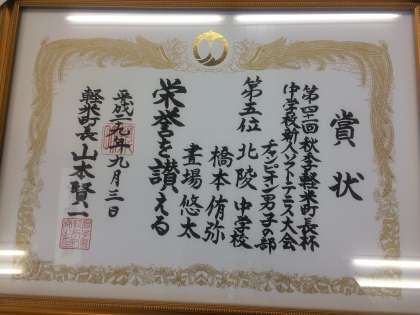 賞状
第四十一回秋季軽米町長杯
中学校新人ソフトテニス大会
チャンピオン男子の部
第五位 北陵中学校
橋本侑弥
畫場悠太
栄誉を讃える
平成二九年九月三日
軽米町長 山本賢一